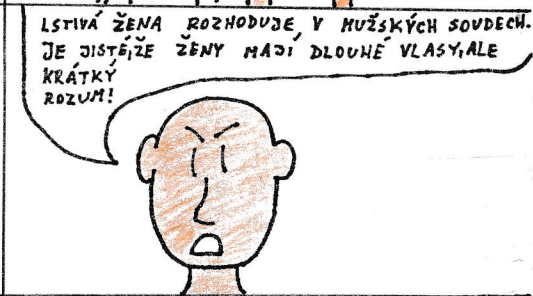 LSTIVÁ ŽENA ROZHODUJE V MUŽSKÝCH SOUDECH.
JE JISTÉ,ŽE ŽENY MAJÍ DLOUHÉ VLASY,ALE
KRÁTKÝ
ROZUM!